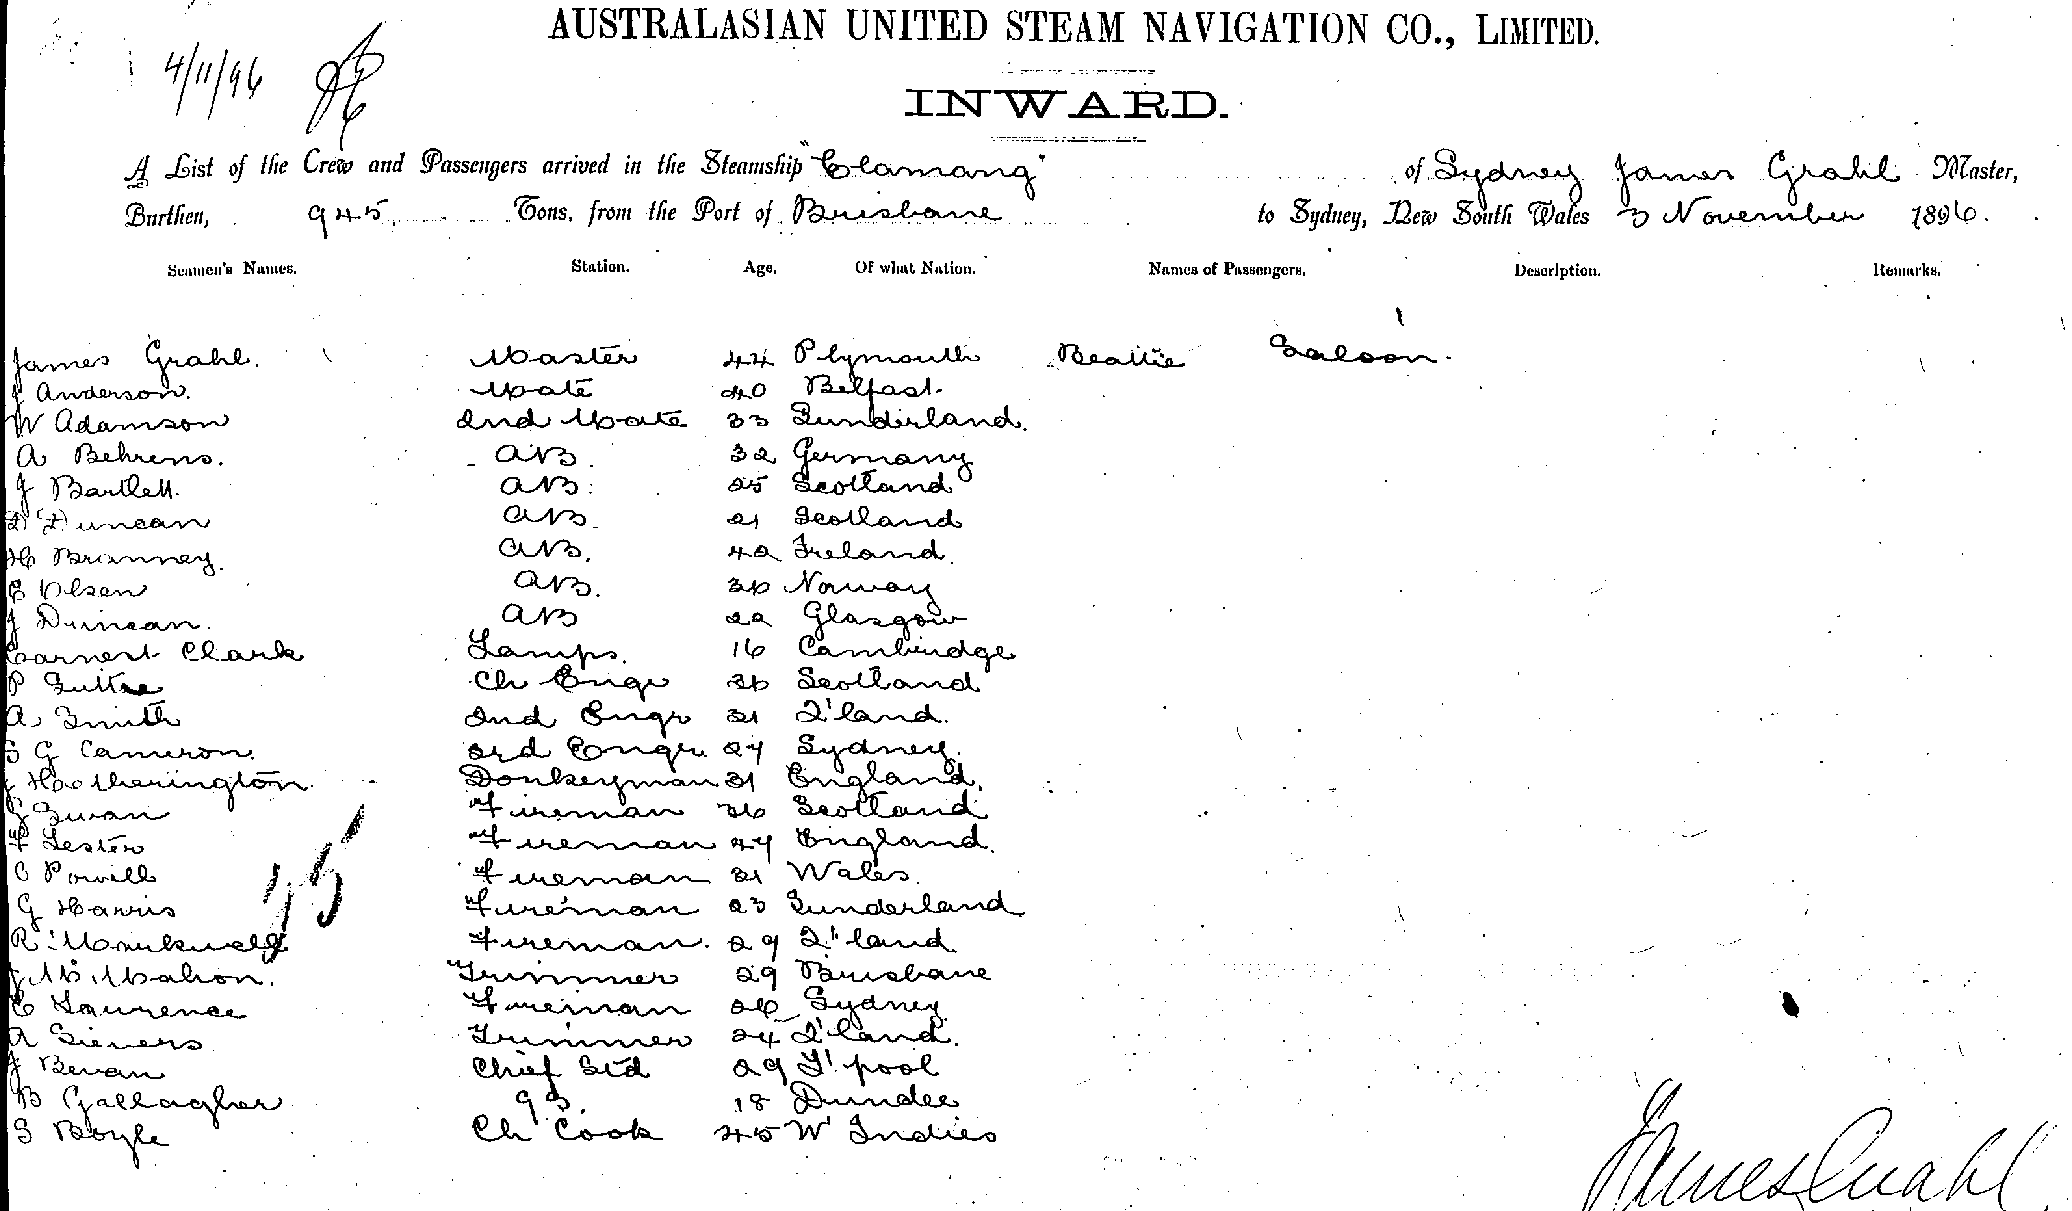 AUSTRALASIAN UNITED STEAM NAVIGATION CO., LIMITED.
4/11/96
INWARD.
A List of the Crew and Passengers arrived in the Steamship "Elamang" of Sydney James Grahl Master,
Burthen, 945 Tons, from the Port of Brisbane to Sydney, New South Wales 3 November 1896.
Seamen's Names. Station. Age. Of what Nation. Names of Passengers. Description. Remarks.
James Grahl. Master 44 Plymouth Beattie Saloon.
J Anderson. Mate 40 Belfast.
W Adamson 2nd Mate 33 Sunderland.
A Behrens. AB. 32 Germany
J Bartlett. AB. 25 Scotland
D Duncan AB. 21 Scotland
H Branney. AB. 42 Ireland.
E Olsen AB. 36 Norway
J Duncan. AB 22 Glasgow
Earnest Clark Lamps. 16 Cambridge
P Ch Engr 36 Scotland
A Smith 2nd Engr 31 Q'land.
S G Cameron. 3rd Engr. 27 Sydney.
J Hetherington. Donkeyman 31 England.
J Swan Fireman 36 Scotland
F Lester Fireman 27 England.
C Powell Fireman 31 Wales.
G Harris Fireman 23 Sunderland
R Fireman. 29 Q'land
J McMahon. Trimmer 29 Brisbane
E Laurence Fireman 26 Sydney
A Sievers Trimmer 24 Q'land.
J Bevan Chief Std 29 L'pool
B Gallagher G.S. 18 Dundee
S Boyle Ch Cook 45 W Indies
James Grahl